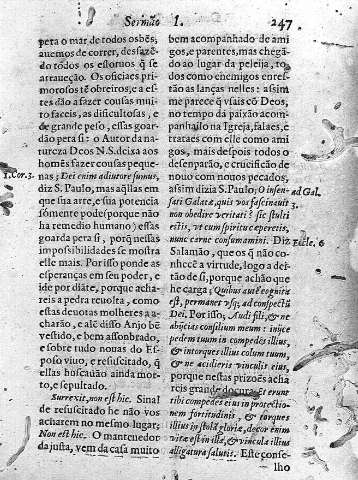 Sermão I. 247
pera o mar de todos os bẽs;
auemos de correr, desfazẽ-
do todos os estoruos q̃ se
atraueção. Os officiaes pri-
morosos tẽ obreiros, e a es-
tes dão a fazer cousas mui-
to faceis, as dificultosas, e
de grande peso, essas goar-
dão pera si: o Autor da na-
tureza Deos N.S. deixa aos
homẽs fazer cousas peque-
1. Cor. 3.
nas; Dei enim adiutores sumus,
diz S. Paulo, mas aq̃llas em
que sua arte, e sua potencia
sómente pode (porque não
ha remedio humano) essas
goarda pera si, porq̃ nessas
impossibilidades se mostra
elle mais. Por isso ponde as
esperanças em seu poder, e
ide por diãte, porque acha-
reis a pedra reuolta, como
estas deuotas molheres a a-
charão, e alẽ disso Anjo bẽ
vestido, e bem assombrado,
e sobre tudo nouas do Es-
poso viuo, e resuscitado, q̃
ellas buscauão ainda mor-
to, e sepultado.
Surrexit, non est hic. Sinal
de resuscitado he não vos
acharem no mesmo lugar;
Non est hic. O mantenedor
da justa, vem da casa muito
bem acompanhado de ami-
gos, e parentes, mas chegã-
do ao lugar da peleija, to-
dos como enemigos enres-
tão as lanças nelles: assim
me parece q̃ vsais cõ Deos,
no tempo da paixão acom-
panhailo na Igreja, falaes, e
trataes com elle como ami-
gos, mais despois todos o
desemparão, e crucificão de
nouo com nouos peccados,
assim dizia S. Paulo; O insen-
ad Gal. 3.
sati Galatæ, quis vos fascinauit
non obedire veritati? sic stulti
estis, vt cum spiritu cæperitis,
nunc carne consumamini. Diz
Eccle. 6
Salamão, que os q̃ não co-
nhecẽ a virtude, logo a dei-
tão de si, porque achão que
he carga; Quibus autẽ cognita
est, permanet vsq; ad conspectũ
Dei. Por isso; Audi fili, & ne
abijcias consilium meum: inijce
pedem tuum in compedes illius,
& in torques illius collum tuum,
& ne acidieris vinculis eius,
porque nestas prizoẽs acha
reis grande doçura: & erunt
tibi compedes eius in protectio-
nem fortitudinis, & torques
illius in stolã gloriæ, decor enim
vitæ est in illa, & vincula illius
alligatura salutis. Este conse-
lho